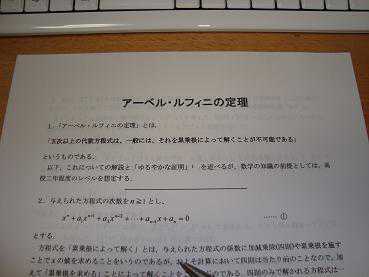 アーベル・ルフィニの定理
1. 「アーベル・ルフィニの定理」とは、
「五次以上の代数方程式は、一般には、それを累乗根によって解くことが不可能である」
というものである。
以下、これについての解説と「ゆるやかな証明」 を述べるが、数学の知識の前提としては、高
校二年程度のレベルを想定する。
2. 与えられた方程式の次数をn≧1とし、
xⁿ+a₁xⁿ⁻¹+a₂xⁿ⁻²+……+aₙ₋₁x+aₙ=0 …… ①
とする。
方程式を「累乗根によって解く」とは、与えられた方程式の係数に加減乗除(四則)や累乗根を施す
ことでxの値を求めることをいうのであるが、およそ計算において四則は当たり前のことなので、加
えて「累乗根を求める」ことによって解くことを である。四則のみで解かれる方程式は